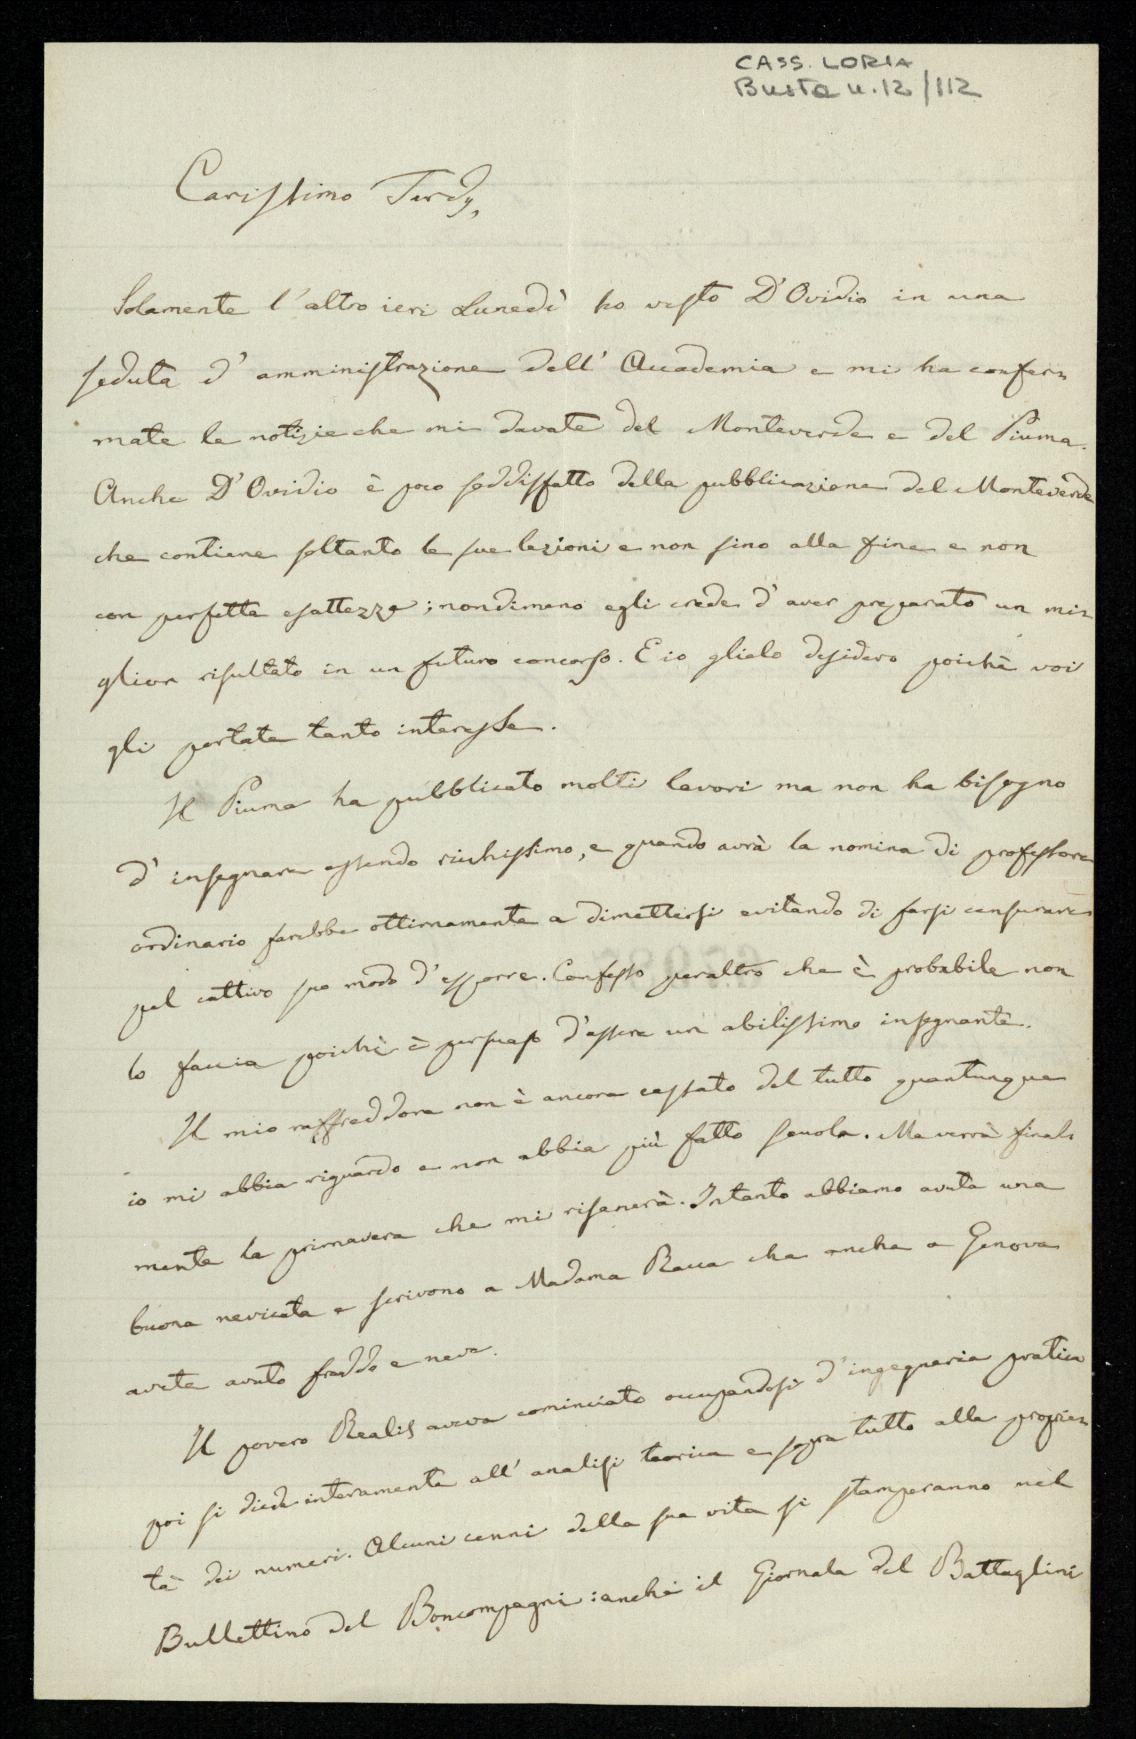 CASS. LORIA
Busta n. 12/112
Carissimo Tardy,
Solamente l'altro ieri Lunedì ho visto D'Ovidio in una
seduta d'amministrazione dell'Accademia e mi ha confer-
mate le notizie che mi davate del Monteverde e del Piuma.
Anche D'Ovidio è poco soddisfatto della pubblicazione del Monteverde
che contiene soltanto le sue lezioni e non sino alla fine e non
con perfetta esattezza; nondimeno egli crede d'aver preparato un mi-
glior risultato in un futuro concorso. E io glielo desidero poichè voi
gli portate tanto interesse.
Il Piuma ha pubblicato molti lavori ma non ha bisogno
d'insegnare essendo ricchissimo, e quando avrà la nomina di professore
ordinario farebbe ottimamente a dimettersi evitando di farsi censurare
pel cattivo suo modo d'esporre. Confesso peraltro che è probabile non
lo faccia poichè è persuaso d'essere un abilissimo insegnante.
Il mio raffreddore non è ancora cessato del tutto quantunque
io mi abbia riguardo e non abbia più fatto scuola. Ma verrà final-
mente la primavera che mi risanerà. Intanto abbiamo avuta una
buona nevicata e scrivono a Madama Racca che anche a Genova
avete avuto freddo e neve.
Il povero Realis aveva cominciato occupandosi d'ingegneria pratica
poi si diede interamente all'analisi teorica e sopra tutto alla proprie-
tà dei numeri. Alcuni cenni della sua vita si stamperanno nel
Bullettino del Boncompagni: anche il Giornale del Battaglini